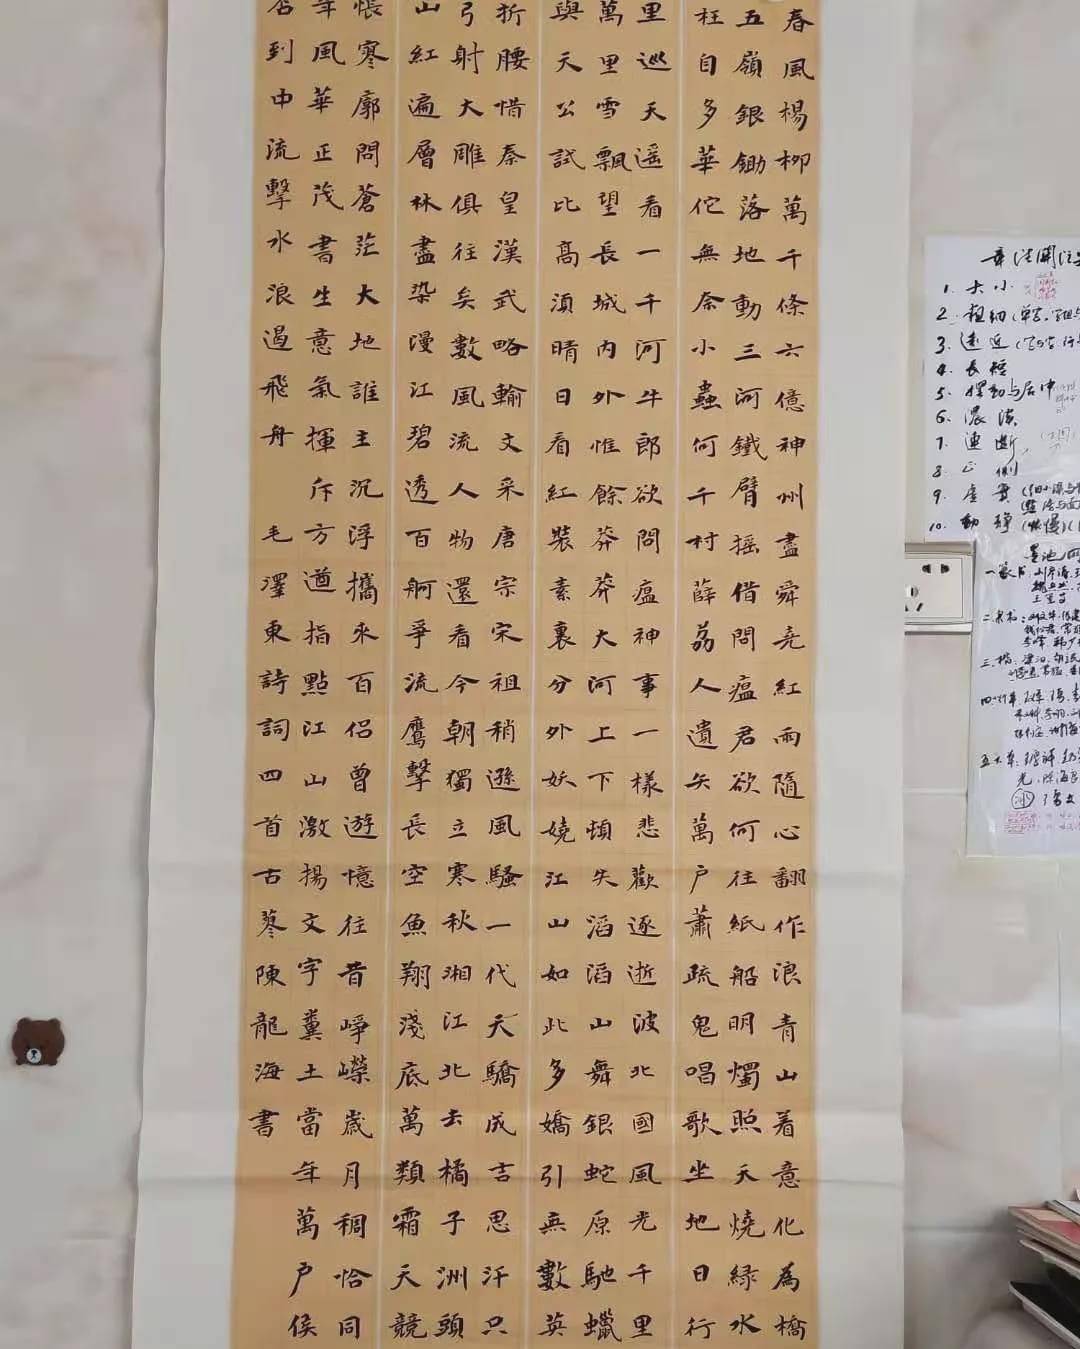 春風楊柳萬千條六億神州盡舜堯紅雨隨心翻作浪青山着意化為橋
五嶺銀鋤落地動三河鐵臂摇借問瘟君欲何往紙船明燭照天燒緑水
枉自多華佗無奈小蟲何千村薜荔人遺矢萬户蕭疏鬼唱歌坐地日行
里巡天遥看一千河牛郎欲問瘟神事一樣悲歡逐逝波北國風光千里
萬里雪飄望長城内外惟餘莽莽大河上下頓失滔滔山舞銀蛇原馳蠟
與天公試比高湏晴日看紅裝素裹分外妖嬈江山如此多嬌引无數英
折腰惜秦皇漢武略輸文采唐宗宋祖稍遜風騷一代天驕成吉思汗只
弓射大雕俱往矣數風流人物還看今朝獨立寒秋湘江北去橘子洲頭
山紅遍層林盡染漫江碧透百舸爭流鷹擊長空魚翔淺底萬類霜天競
悵寥廓問蒼茫大地誰主沉浮攜來百侣曾遊憶往昔崢嶸歲月稠恰同
年風華正茂書生意氣揮斥方遒指點江山激揚文字糞土當年萬户侯
否到中流擊水浪遏飛舟 毛澤東詩詞四首古蓼陳龍海書
章法関注
1. 大小
2. 粗细
3. 遠近
4. 長短
5. 擺動与居中
6. 濃淡
7. 連断
8. 正侧
9. 虚實
10. 動静